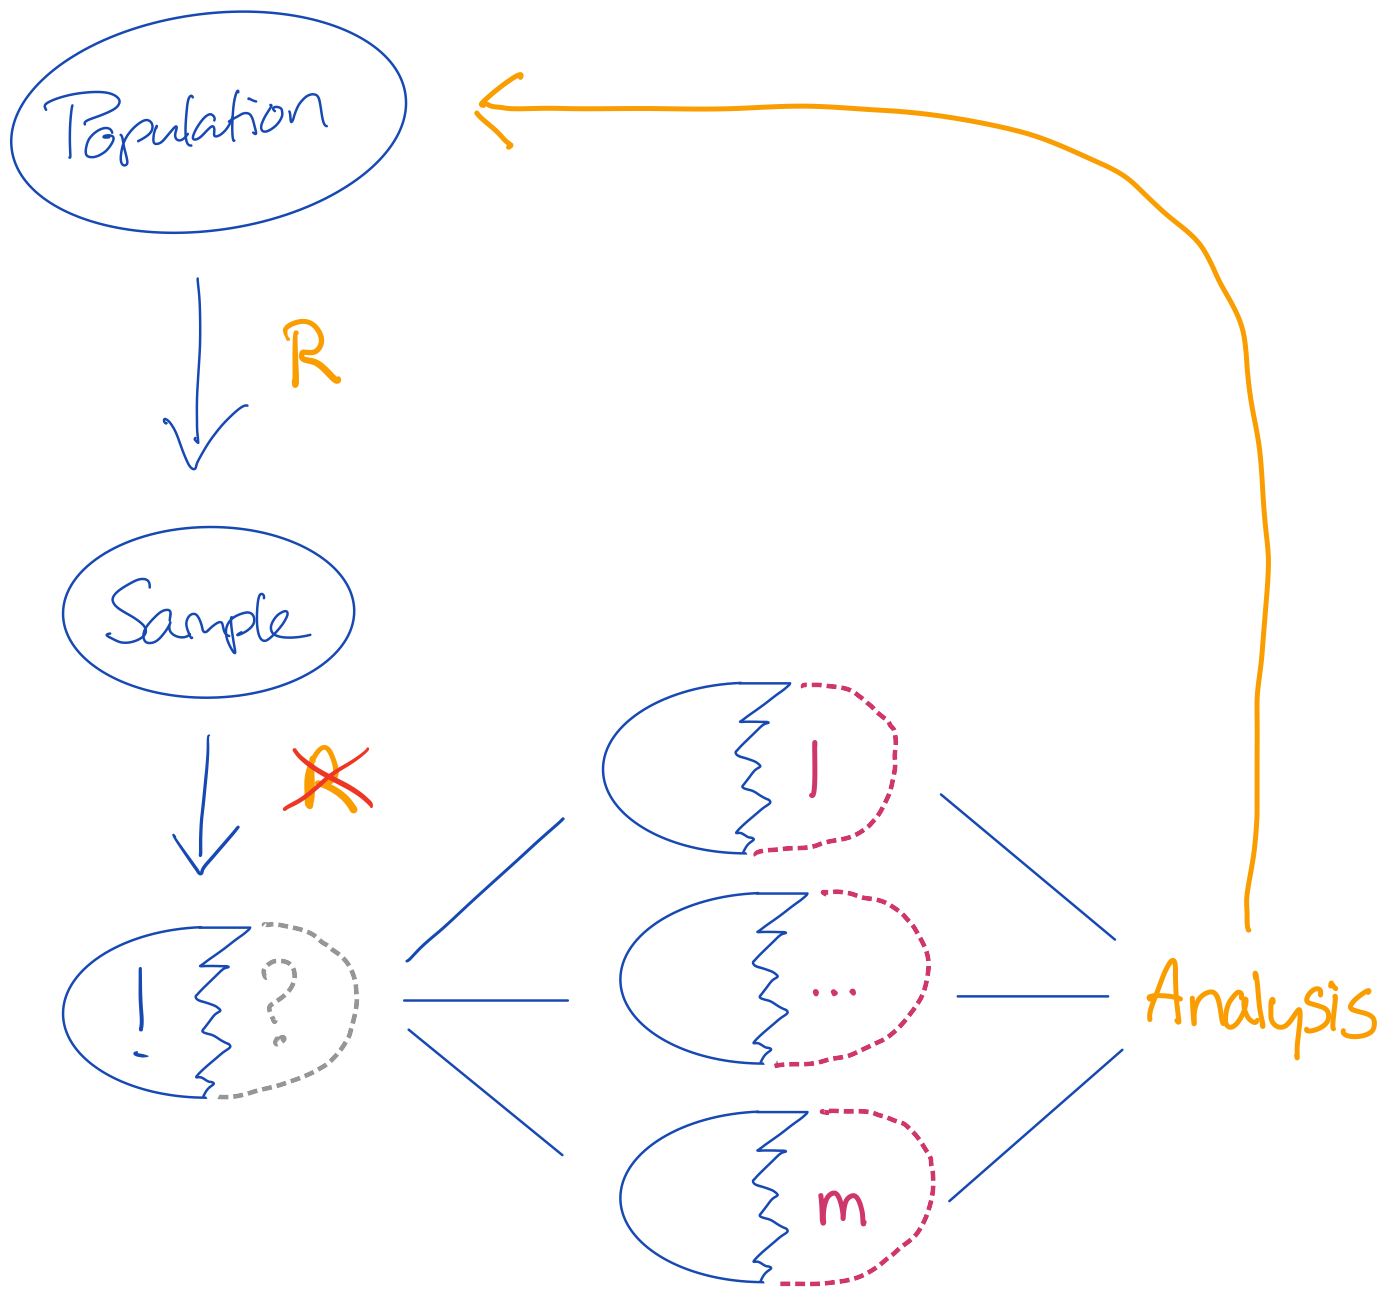 Population
R
Sample
R
! ?
1
...
m
Analysis